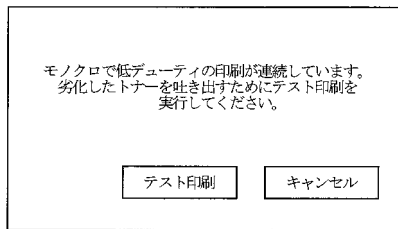 モノクロで低デューティの印刷が連続しています。
劣化したトナーを吐き出すためにテスト印刷を
実行してください。
テスト印刷
キャンセル